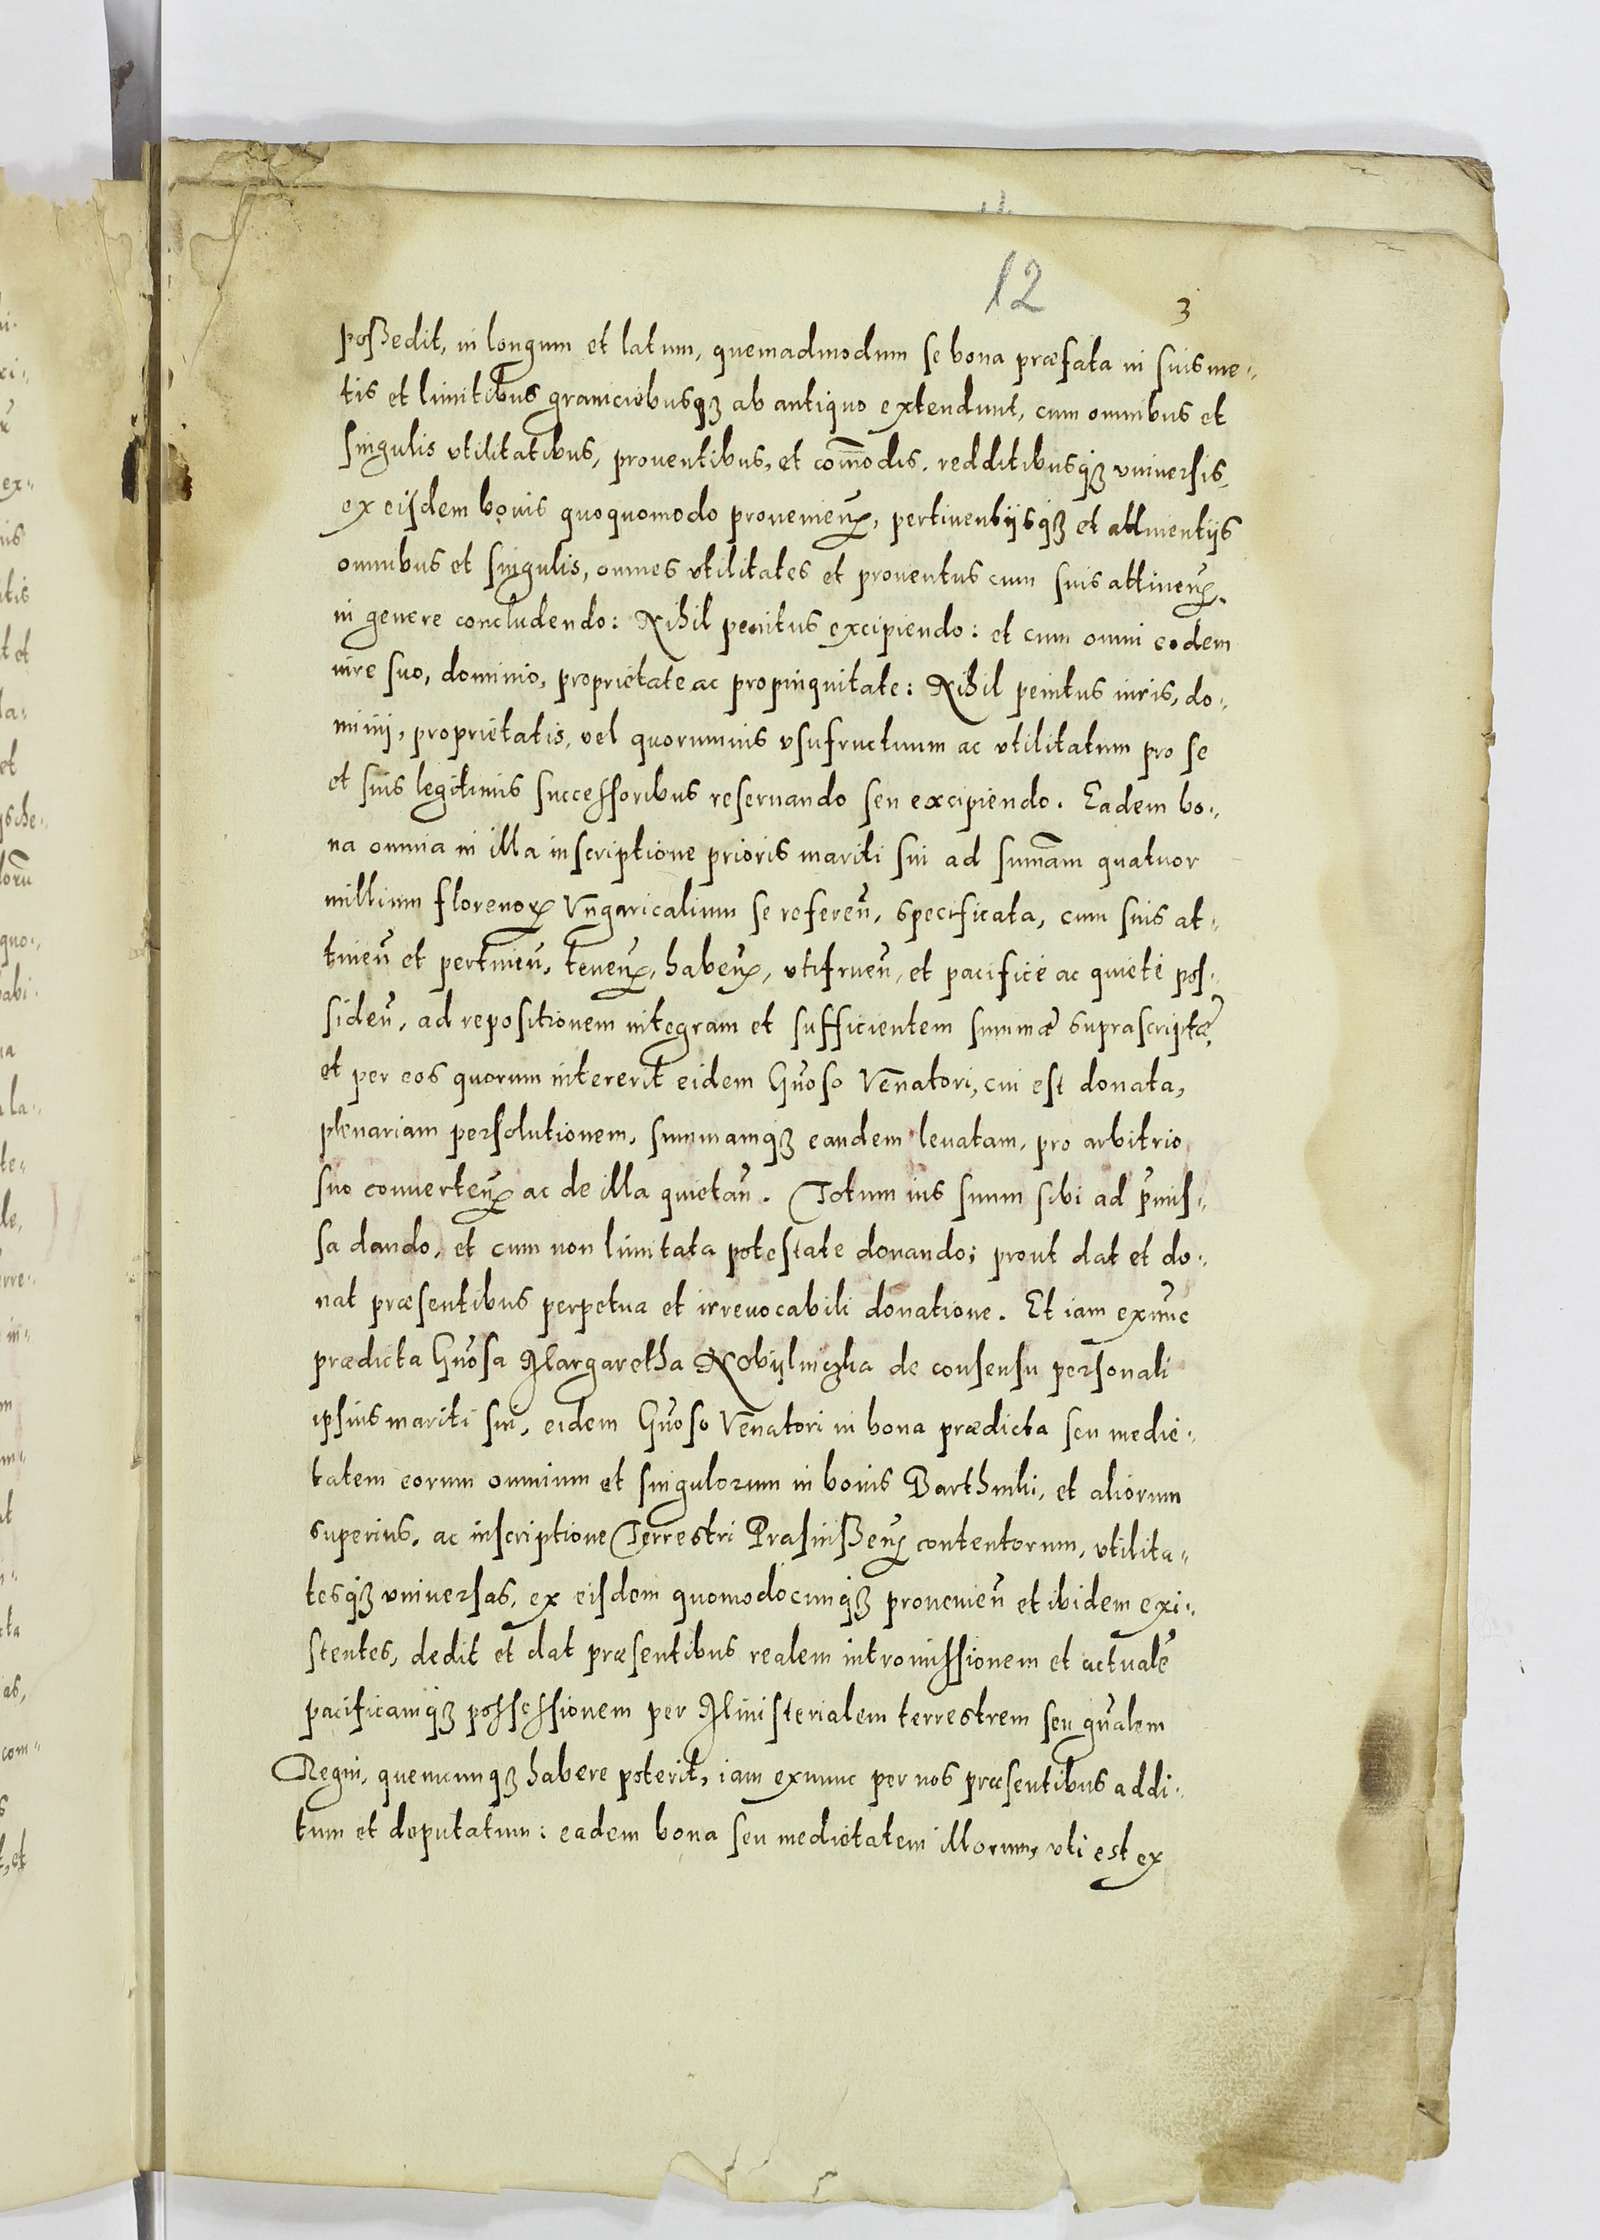 12
3
poßedit, in longum et latum, quemadmodum se bona præfata in suis me-
tis et limitibus graniciebusqꝫ ab antiquo extendunt, cum omnibus et
singulis vtilitatibus, prouentibus, et com̃odis, redditibusqꝫ vniuersis,
ex eisdem bonis quoquomodo prouenieñ, pertinentijsqꝫ et attinentijs
omnibus et singulis, omnes vtilitates et prouentus cum suis attineñ.
in genere concludendo: Nihil penitus excipiendo: et cum omni eodem
iure suo, dominio, proprietate ac propinquitate: Nihil penitus iuris, do-
minij, proprietatis, vel quorumuis vsufructuum ac vtilitatum pro se
et suis legitimis successoribus reseruando seu excipiendo. Eadem bo-
na omnia in illa inscriptione prioris mariti sui ad sum̃am quatuor
millium florenoꝝ Vngaricalium se refereñ, specificata, cum suis at-
tineñ et pertineñ, teneñ, habeñ, vtifrueñ, et pacifice ac quiete pos-
sideñ, ad repositionem integram et sufficientem summæ suprascriptæ,
et per eos quorum intererit eidem Gñoso Venatori, cui est donata,
plenariam persolutionem, summamqꝫ eandem leuatam, pro arbitrio
suo conuerteñ ac de illa quietañ. Totum ius suum sibi ad p̃mis-
sa dando, et cum non limitata potestate donando; prout dat et do-
nat præsentibus perpetua et irreuocabili donatione. Et iam exnũc
prædicta Gñosa Margaretha Kobijlniczka de consensu personali
ipsius mariti sui, eidem Gñoso Venatori in bona prædicta seu medie-
tatem eorum omnium et singulorum in bonis Barthniki, et aliorum
superius, ac inscriptione Terrestri Prasnißeñ contentorum, vtilita-
tesqꝫ vniuersas, ex eisdem quomodocunqꝫ prouenieñ et ibidem exi-
stentes, dedit et dat præsentibus realem intromissionem et actualẽ
pacificamqꝫ possessionem per Ministerialem terrestrem seu gñalem
Regni, quemcunqꝫ habere poterit, iam exnunc per nos præsentibus addi-
tum et deputatum: eadem bona seu medietatem illorum, vti est ex